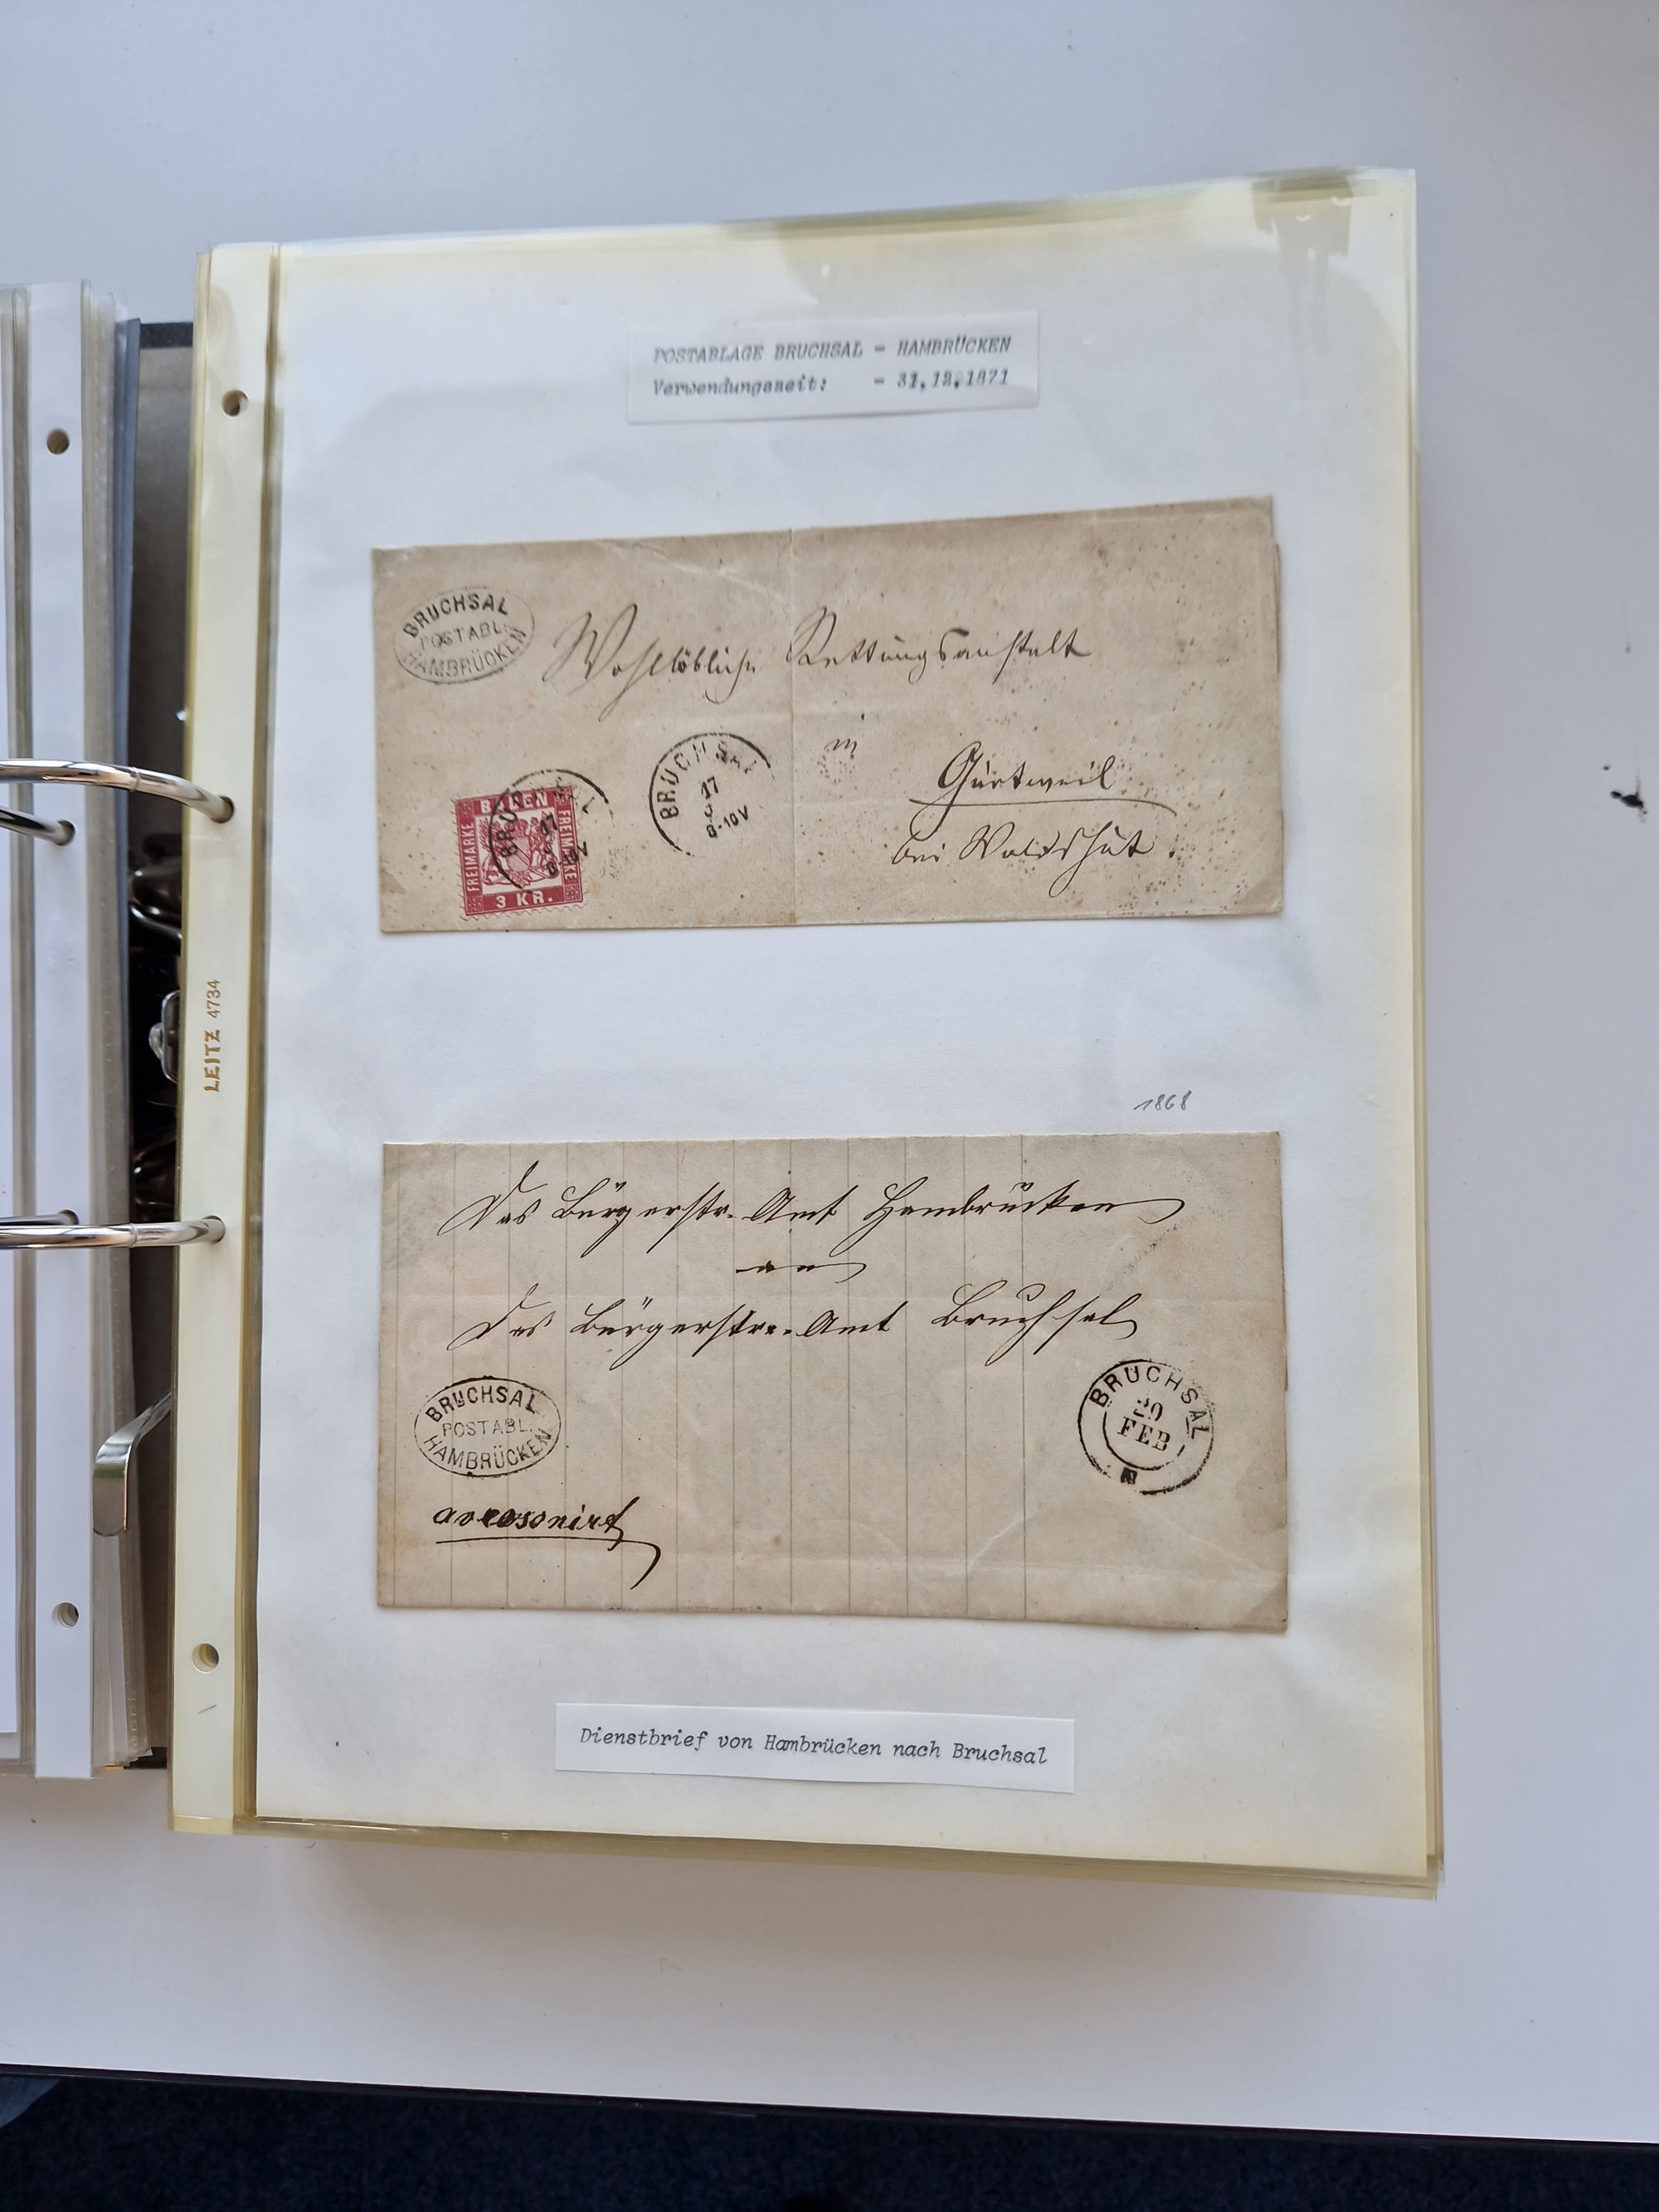 POSTABLAGE BRUCHSAL - HAMBRÜCKEN
Verwendungszeit: - 31.12.1871
BRUCHSAL
POSTABL.
HAMBRÜCKEN
Wohllöbliche Rettungsanstalt
in
Gurtweil
bei Waldshut.
BRUCHSAL
17
8-10V
BADEN
FREIMARKE
FREIMARKE
3 KR.
BRUCHSAL
17
LEITZ 4734
1868
Das Bürgerstr. Amt Hambrücken
an
Das Bürgerstr. Amt Bruchsal
BRUCHSAL
POSTABL.
HAMBRÜCKEN
BRUCHSAL
20
FEB
Dienstbrief von Hambrücken nach Bruchsal